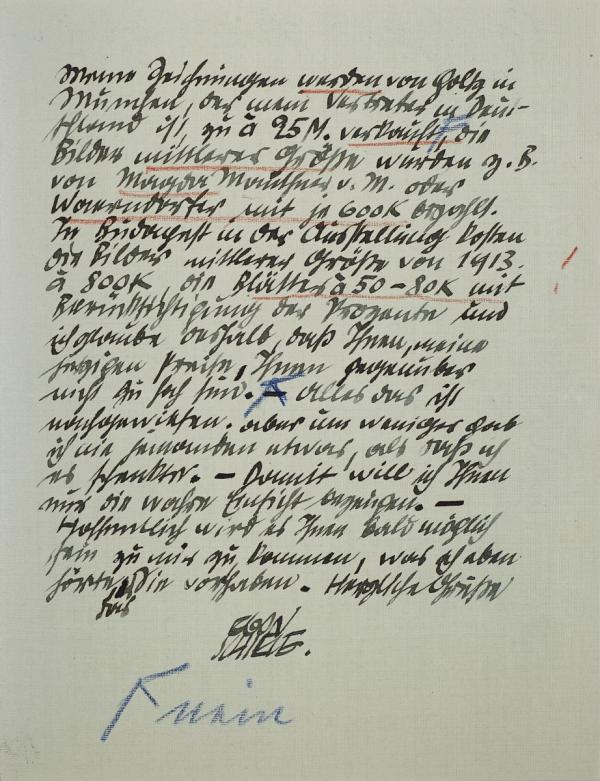 Meine Zeichnungen werden von Goltz in
München, der mein Vertreter in Deut-
schland ist, zu à 25 M. verkauft, die
Bilder mittlerer Größe wurden z. B.
von Magda Mauthner v. M. oder
Waerndorfer mit je 600 K bezahlt.
In Budapest in der Ausstellung kosten
die Bilder mittlerer Größe von 1913.
à 800 K die Blätter à 50–80 K mit
Berücksichtigung der Prozente und
ich glaube deshalb, daß Ihnen, meine
jetzigen Preise, Ihnen gegenüber
nicht zu hoch sind. – Alles das ist
nachgewiesen. aber um weniger gab
ich nie jemanden etwas, als daß ich
es schenkte. – Damit will ich Ihnen
nur die wahre Einsicht bezeugen. –
Hoffentlich wird es Ihnen bald möglich
sein zu mir zu kommen, was ich eben
hörte, Sie vorhaben. Herzliche Grüße
Ihr
EGON
SCHIELE.
nein